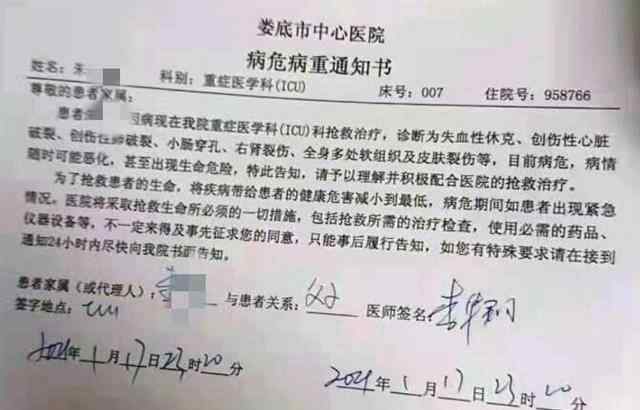 娄底市中心医院
病危病重通知书
姓名：朱 科别：重症医学科(ICU) 床号：007 住院号：958766
尊敬的患者家属：
患者 因病现在我院重症医学科(ICU)科抢救治疗，诊断为失血性休克、创伤性心脏
破裂、创伤性肺破裂、小肠穿孔、右肾裂伤、全身多处软组织及皮肤裂伤等，目前病危，病情
随时可能恶化，甚至出现生命危险，特此告知，请予以理解并积极配合医院的抢救治疗。
为了抢救患者的生命，将疾病带给患者的健康危害减小到最低，病危期间如患者出现紧急
情况。医院将采取抢救生命所必须的一切措施，包括抢救所需的治疗检查，使用必需的药品、
仪器设备等，不一定来得及事先征求您的同意，只能事后履行告知，如您有特殊要求请在接到
通知24小时内尽快向我院书面告知。
患者家属（或代理人）： 与患者关系：父子 医师签名：
签字地点：ICU
2021年1月17日23时20分 2021年1月17日23时20分